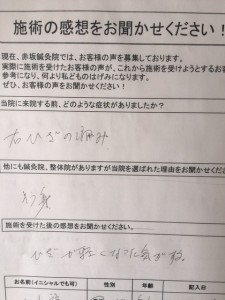 施術の感想をお聞かせください！
現在、赤坂鍼灸院では、お客様の声を募集しております。
実際に施術を受けたお客様の声が、これから施術を受けようとするお客
参考になり、何より私どものはげみになります。
ぜひ、お客様の声をお聞かせください！
当院に来院する前、どのような症状がありましたか？
右ひざの痛み
他にも鍼灸院、整体院がありますが当院を選ばれた理由をお聞かせく
施術を受けた後の感想をお聞かせください。
ひざが軽くなった気がする。
お名前(イニシャルでも可) 性別 年齢 記入日